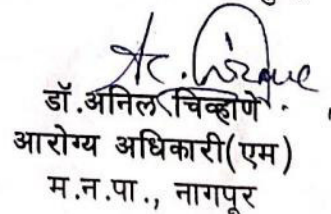 डॉ.अनिल चिव्हाणे
आरोग्य अधिकारी(एम)
म.न.पा., नागपूर